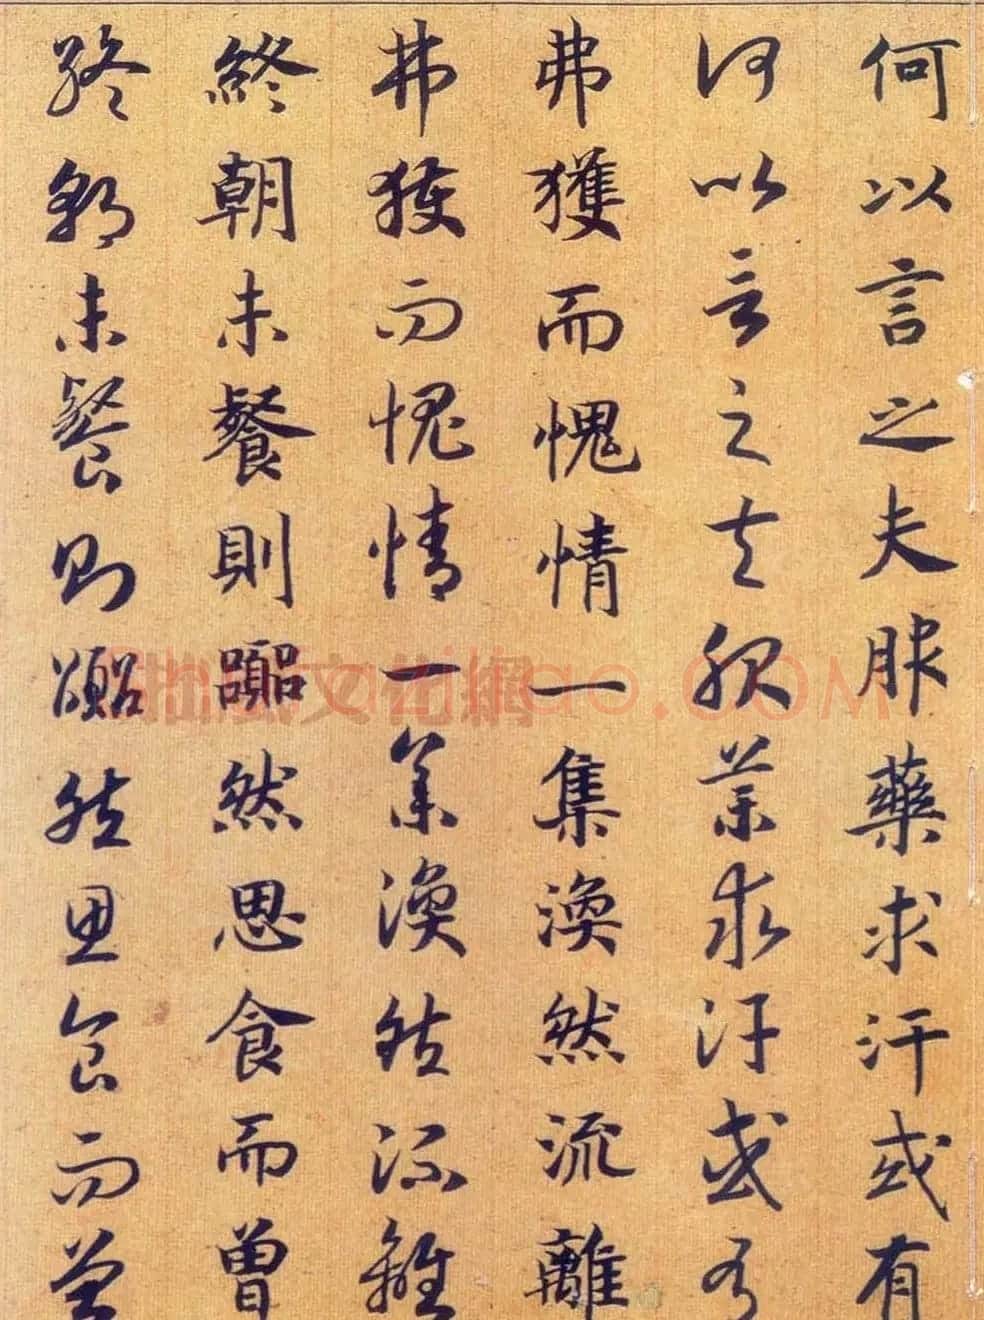 何以言之夫服藥求汗或有
何以言之夫服藥求汗或有
弗獲而愧情一集渙然流離
弗獲而愧情一集渙然流離
終朝未餐則囂然思食而曾
終朝未餐則囂然思食而曾
shufaziliao.COM